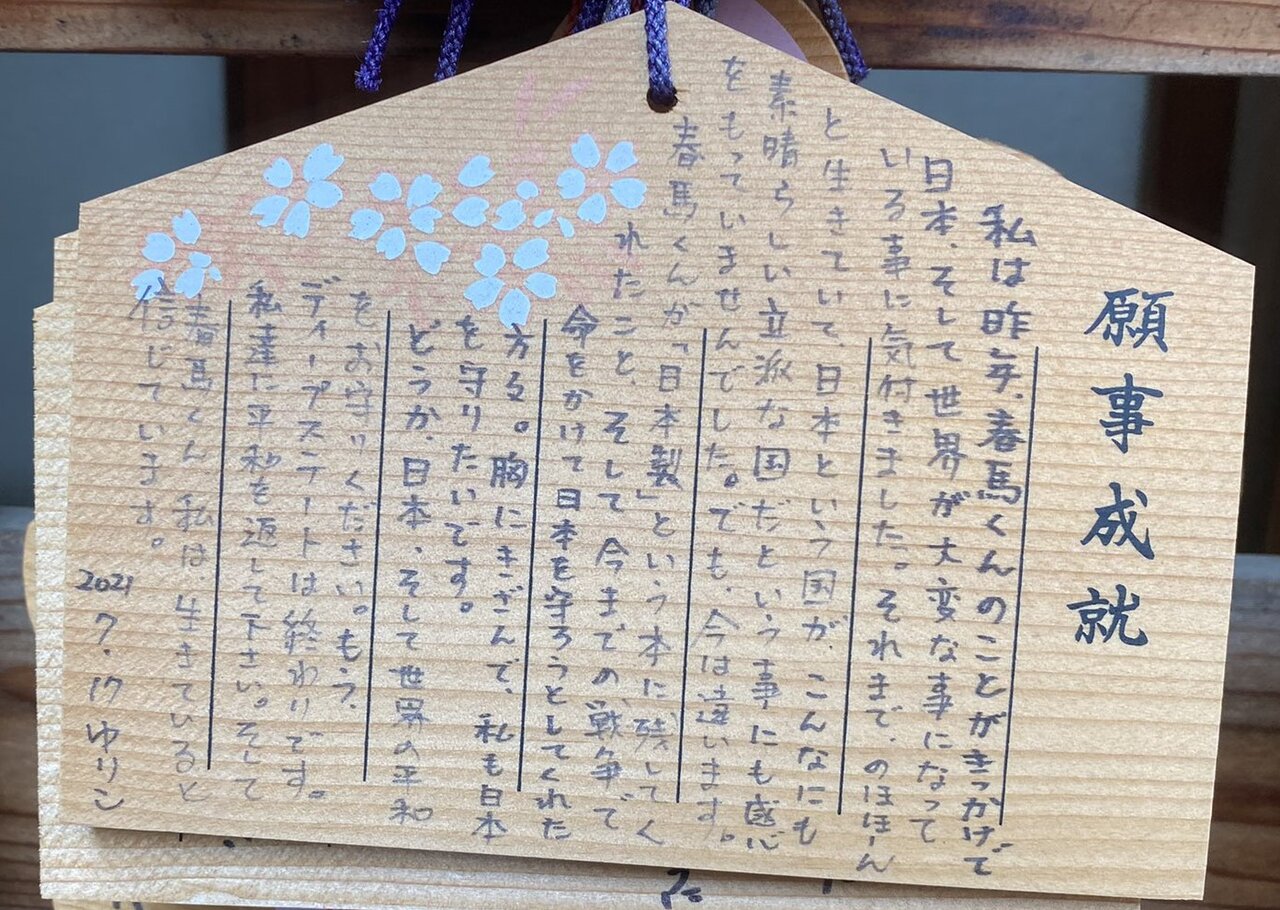 願事成就
私は昨年、春馬くんのことがきっかけで
日本、そして世界が大変な事になって
いる事に気付きました。それまで、のほほーん
と生きていて、日本という国が、こんなにも
素晴らしい立派な国だという事にも感心
をもっていませんでした。でも、今は違います。
春馬くんが「日本製」という本に残してく
れたこと、そして今までの戦争で
命をかけて日本を守ろうとしてくれた
方々。胸にきざんで、私も日本
を守りたいです。
どうか、日本、そして世界の平和
をお守りください。もう、
ディープステートは終わりです。
私達に平和を返して下さい。そして
春馬くん 私は、生きていると
信じています。
2021 7.17 ゆリン